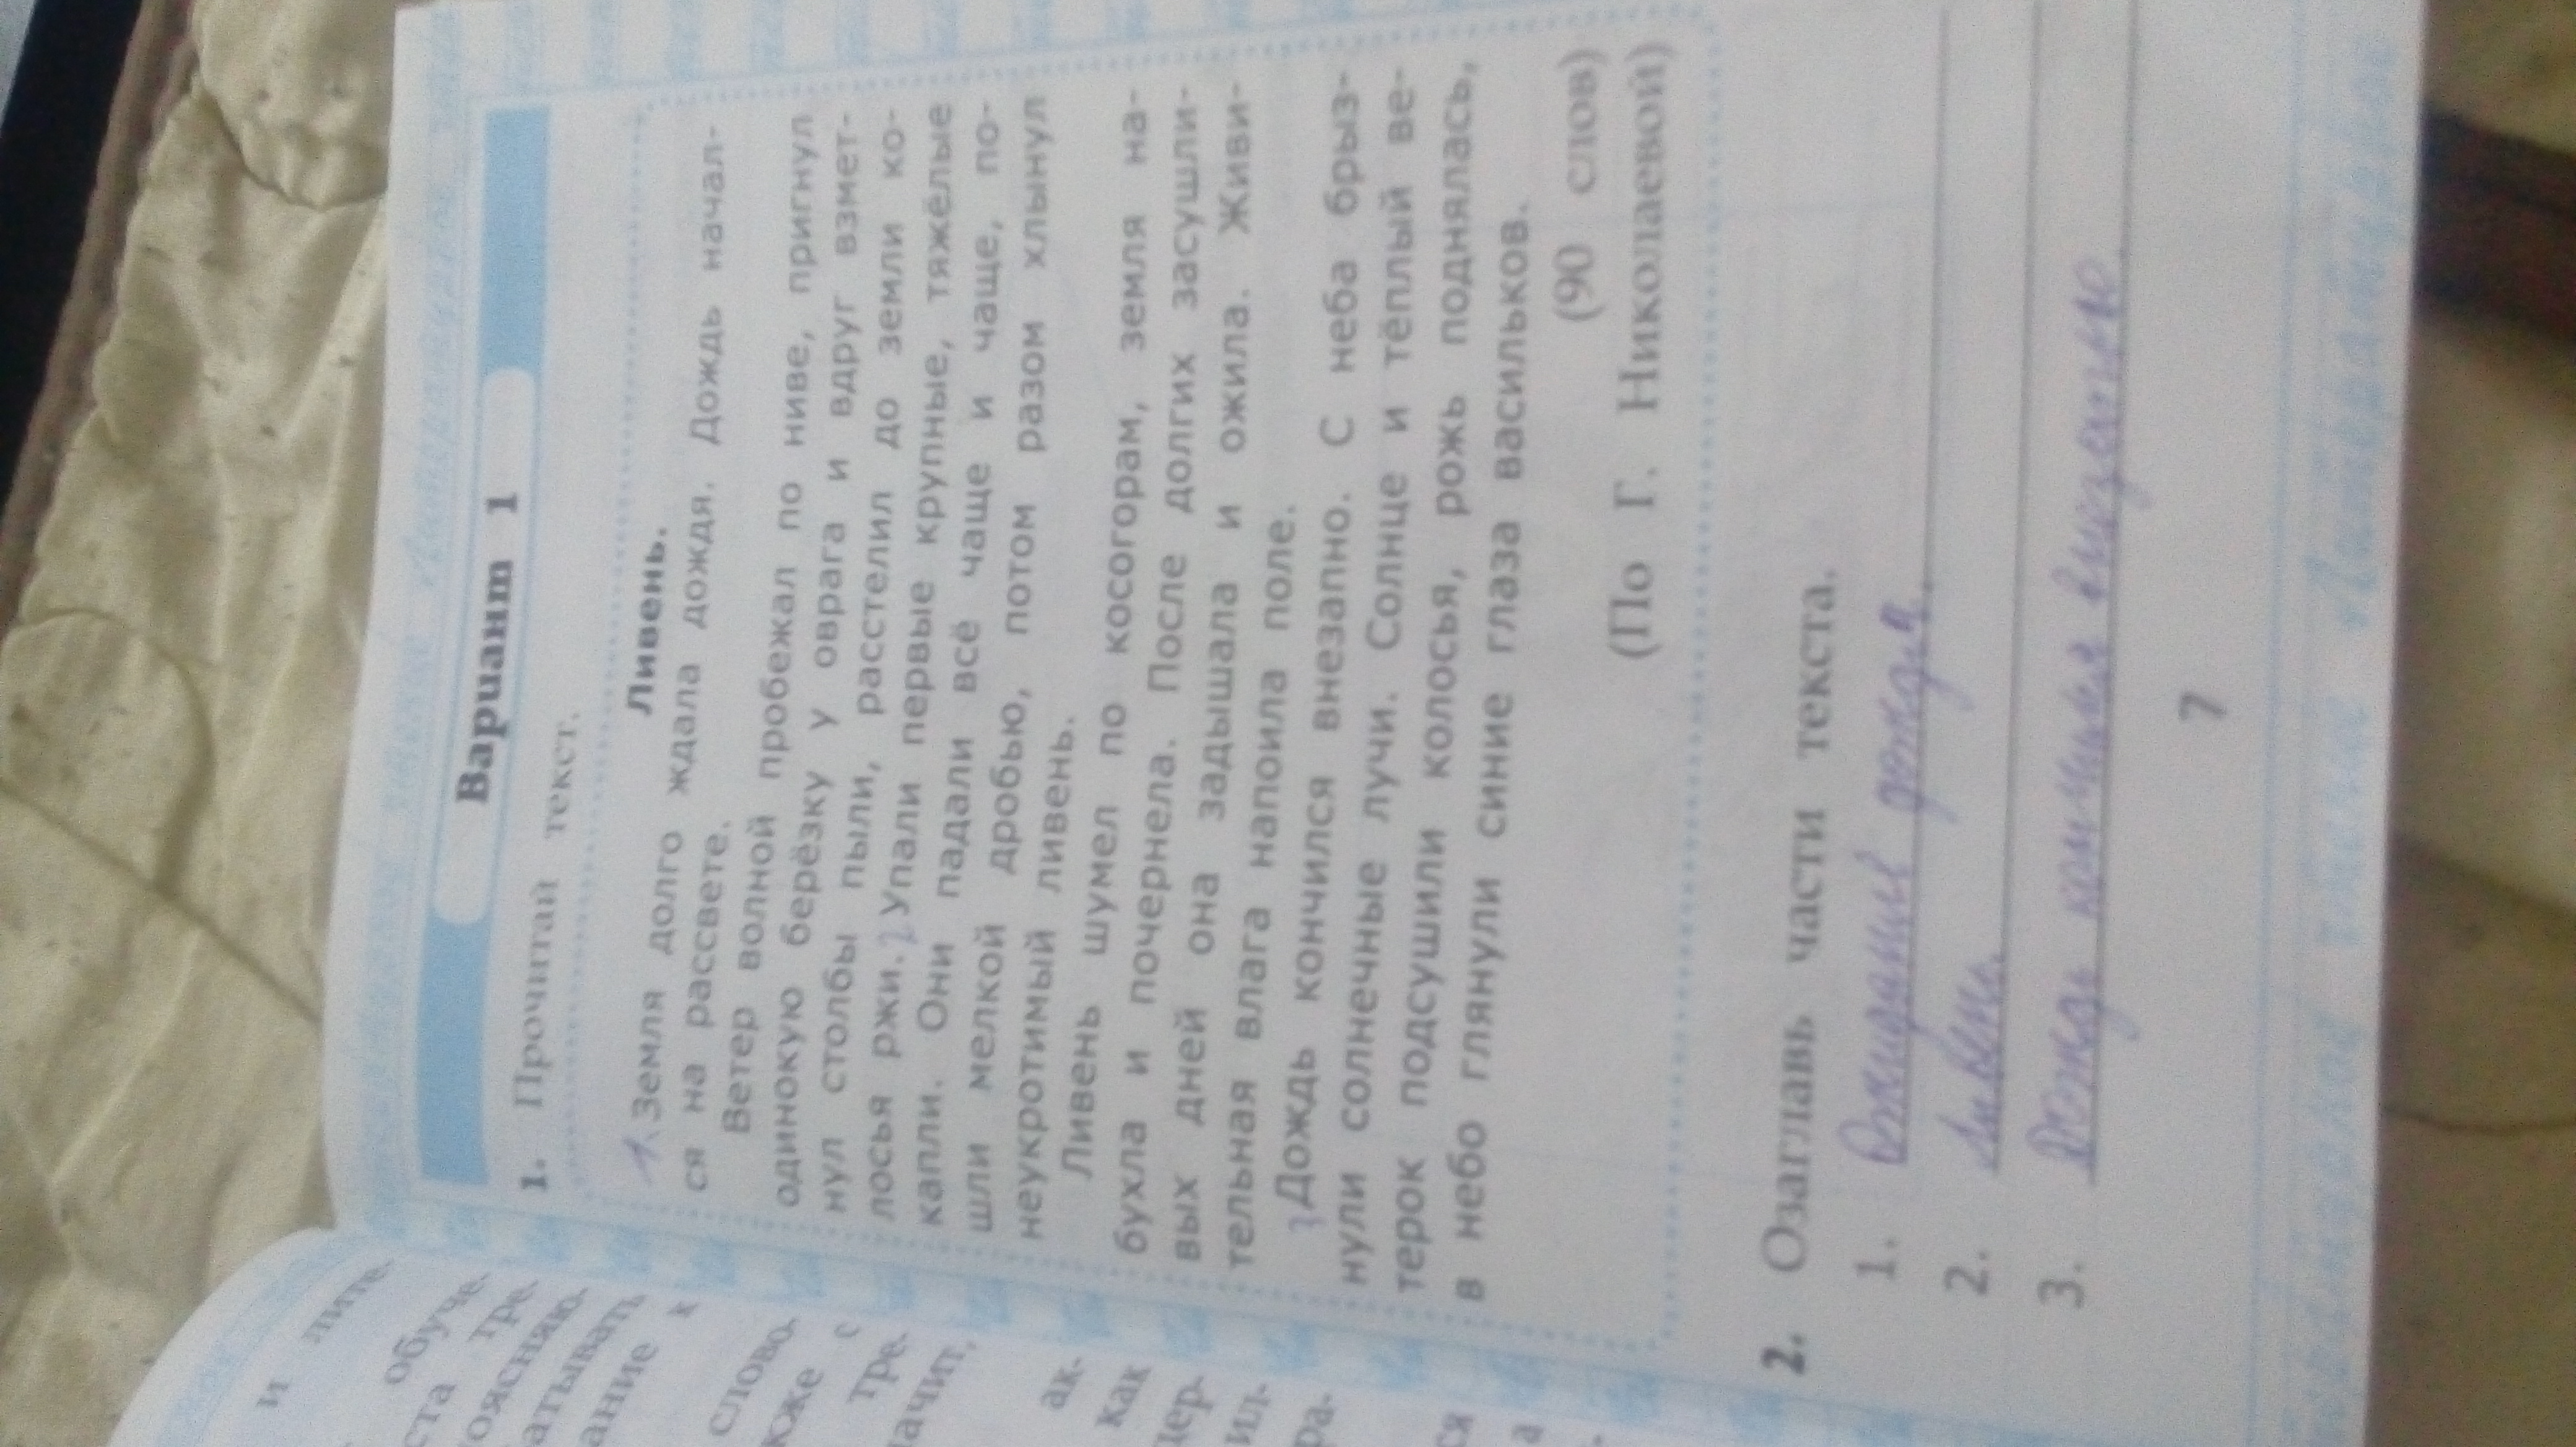 и лите-
обуче-
ста тре-
оясняю-
атывать
ание к
слово-
кже с
тре-
ачит,
ак-
как
пер-
ил-
ра-
ся
а
Вариант 1
1. Прочитай текст.
Ливень.
1. Земля долго ждала дождя. Дождь начал-
ся на рассвете.
Ветер волной пробежал по ниве, пригнул
одинокую берёзку у оврага и вдруг взмет-
нул столбы пыли, расстелил до земли ко-
лосья ржи. 2 Упали первые крупные, тяжёлые
капли. Они падали всё чаще и чаще, по-
шли мелкой дробью, потом разом хлынул
неукротимый ливень.
Ливень шумел по косогорам, земля на-
бухла и почернела. После долгих засушли-
вых дней она задышала и ожила. Живи-
тельная влага напоила поле.
3 Дождь кончился внезапно. С неба брыз-
нули солнечные лучи. Солнце и тёплый ве-
терок подсушили колосья, рожь поднялась,
в небо глянули синие глаза васильков.
(90 слов)
(По Г. Николаевой)
2. Озаглавь части текста.
1. Ожидание дождя.
2. Ливень.
3. Дождь кончился внезапно
7